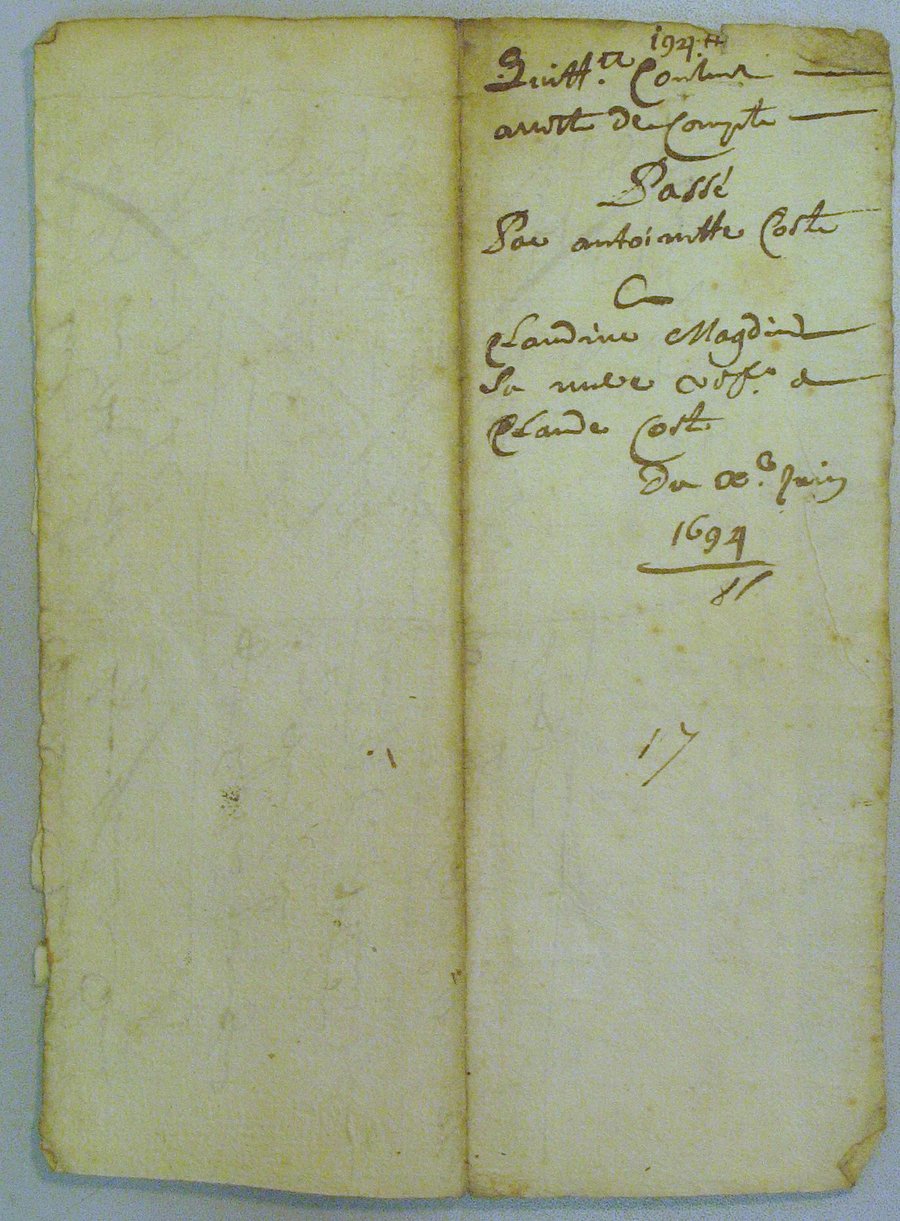 194 tt
Quitt.ce Conten.t
arrest de Compte
Passé
Par antoinette Coste
A
Claudine Magdin
Sa mere vefv.e de
Claude Coste
Du Juin
1694
17